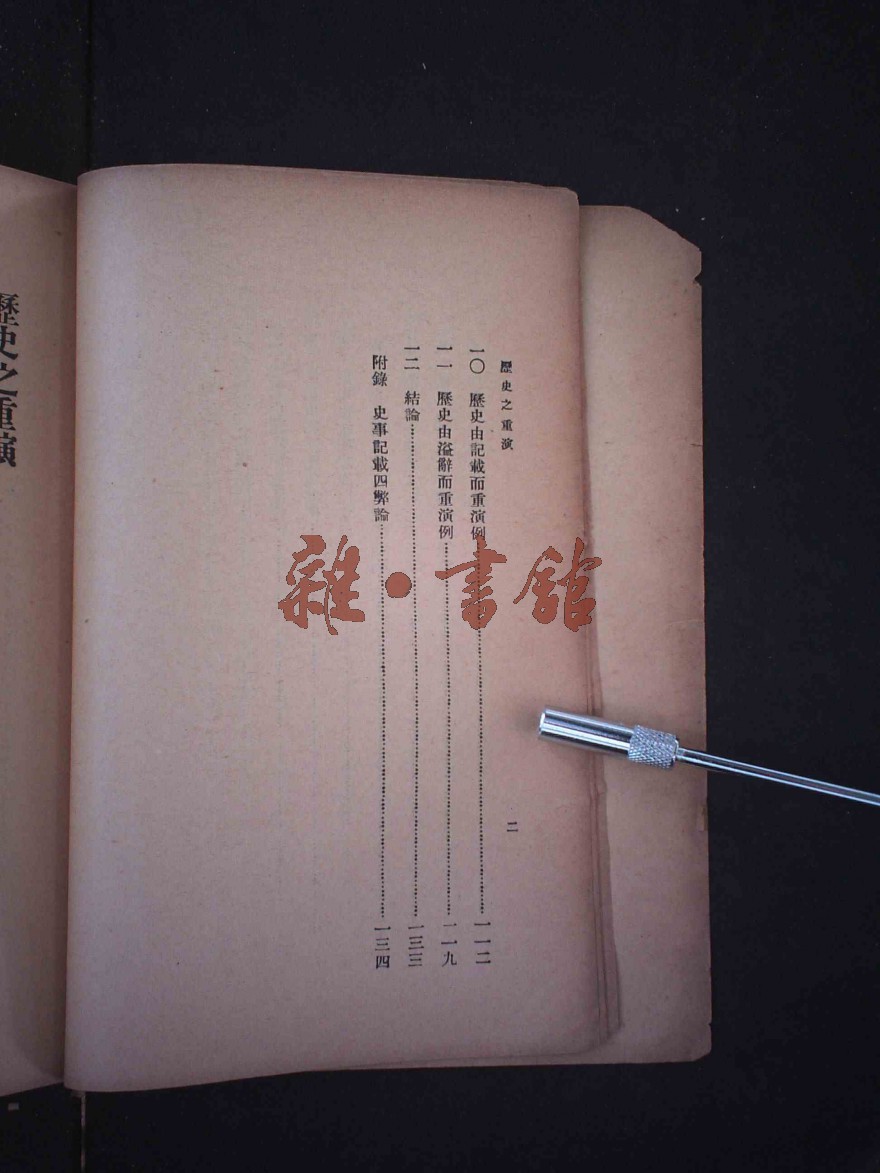 歷史之重演
二
一〇　歷史由記載而重演例……一一二
一一　歷史由溢辭而重演例……一一九
一二　結論……一三三
附錄　史事記載四弊論……一三四
歷史之重演
雜·書館